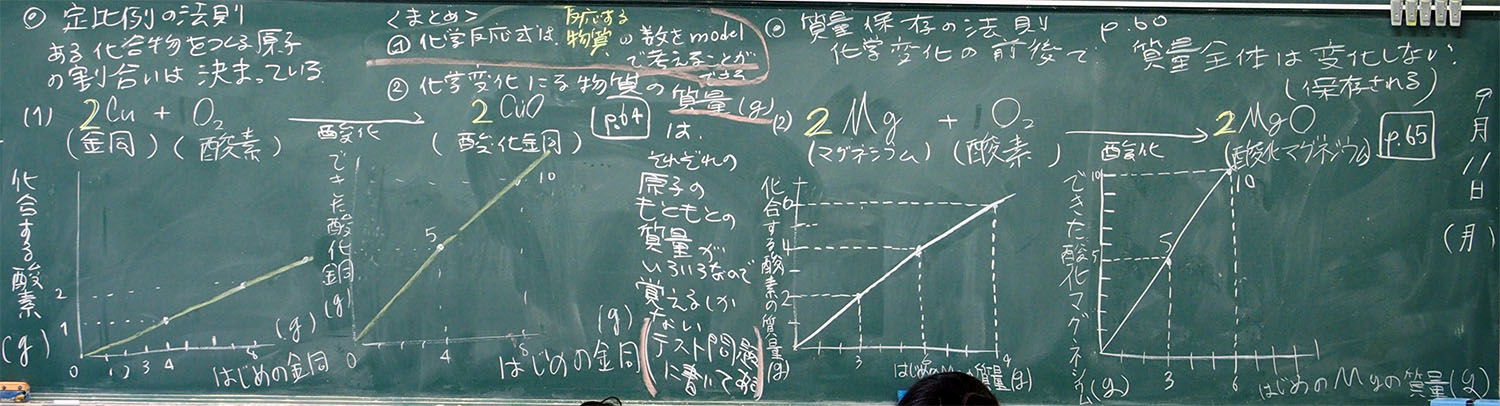 ◎ 定比例の法則
ある化合物をつくる原子
の割合いは決まっている
(1) 2Cu + O₂ → 2CuO
酸化
(金同) (酸素) (酸化金同)
p.64
化合する酸素
(g)
2
1
0 1 2 3 4 6
(g)
はじめの金同
できた酸化金同(g)
10
5
0 4 8
(g)
はじめの金同
<まとめ>
① 化学反応式は、反応する物質の数をmodel
で考えることが
できる
② 化学変化による物質の質量(g)
は、
それぞれの
原子の
もともとの
質量が
いろいろなので
覚えるしか
ない
(テスト問題
に書いてある)
◎ 質量保存の法則 p.60
化学変化の前後で、質量全体は変化しない。
(保存される)
(2) 2Mg + O₂ → 2MgO
酸化
(マグネシウム) (酸素) (酸化マグネシウム)
p.65
化合する酸素の質量(g)
6
4
2
0 3 6 9
はじめのMgの質量(g)
できた酸化マグネシウム(g)
10
5
10
5
0 3 6
はじめのMgの質量(g)
9月11日(月)